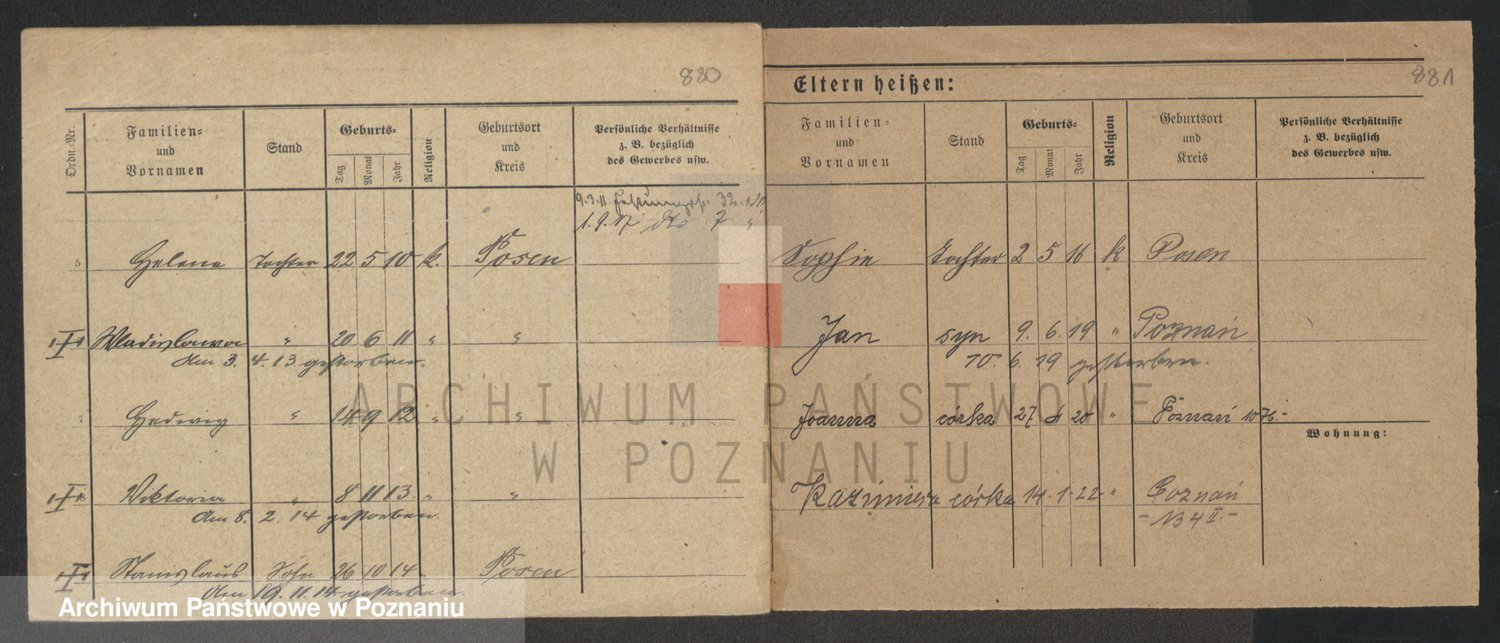 880
Ordn.-Nr.
Familien-
und
Vornamen
Stand
Geburts-
Tag
Monat
Jahr
Religion
Geburtsort
und
Kreis
Persönliche Verhältnisse
z. B. bezüglich
des Gewerbes usw.
9.3.11
1.9.17 dto 7 "
5 Helene Tochter 22 5 10 k. Posen
Wladislawa " 20 6 11 " "
Am 3. 4. 13 gestorben.
7 Hedwig " 14 9 12 " "
Viktoria " 8 11 13 " "
Am 8. 2. 14 gestorben
Stanislaus Sohn 26 10 14 Posen
Am 19. 11. 14 gestorben
881
Eltern heißen:
Familien-
und
Vornamen
Stand
Geburts-
Tag
Monat
Jahr
Religion
Geburtsort
und
Kreis
Persönliche Verhältnisse
z. B. bezüglich
des Gewerbes usw.
Sophie Tochter 2 5 16 k Posen
Jan syn 9. 6. 19 " Poznań
10. 6. 19 gestorben.
Joanna córka 27 20 " Poznań
Wohnung:
Kazimiera córka 14. 1. 22 " Poznań
- 134 II. -
ARCHIWUM PAŃSTWOWE
W POZNANIU
Archiwum Państwowe w Poznaniu